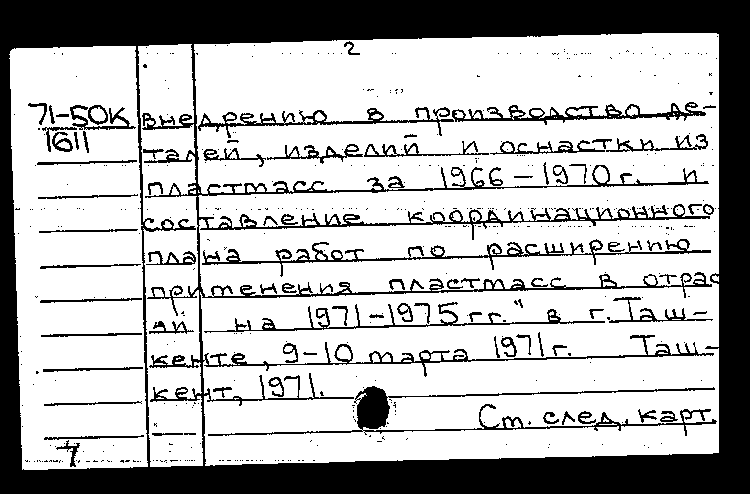 2
71-50К внедрению в производство де-
1611 талей, изделий и оснастки из
пластмасс за 1966-1970г. и
составление координационного
плана работ по расширению
применения пластмасс в отрас
ай на 1971-1975гг." в г. Таш-
кенте, 9-10 марта 1971г. Таш-
кент, 1971.
Ст. след. карт.
7